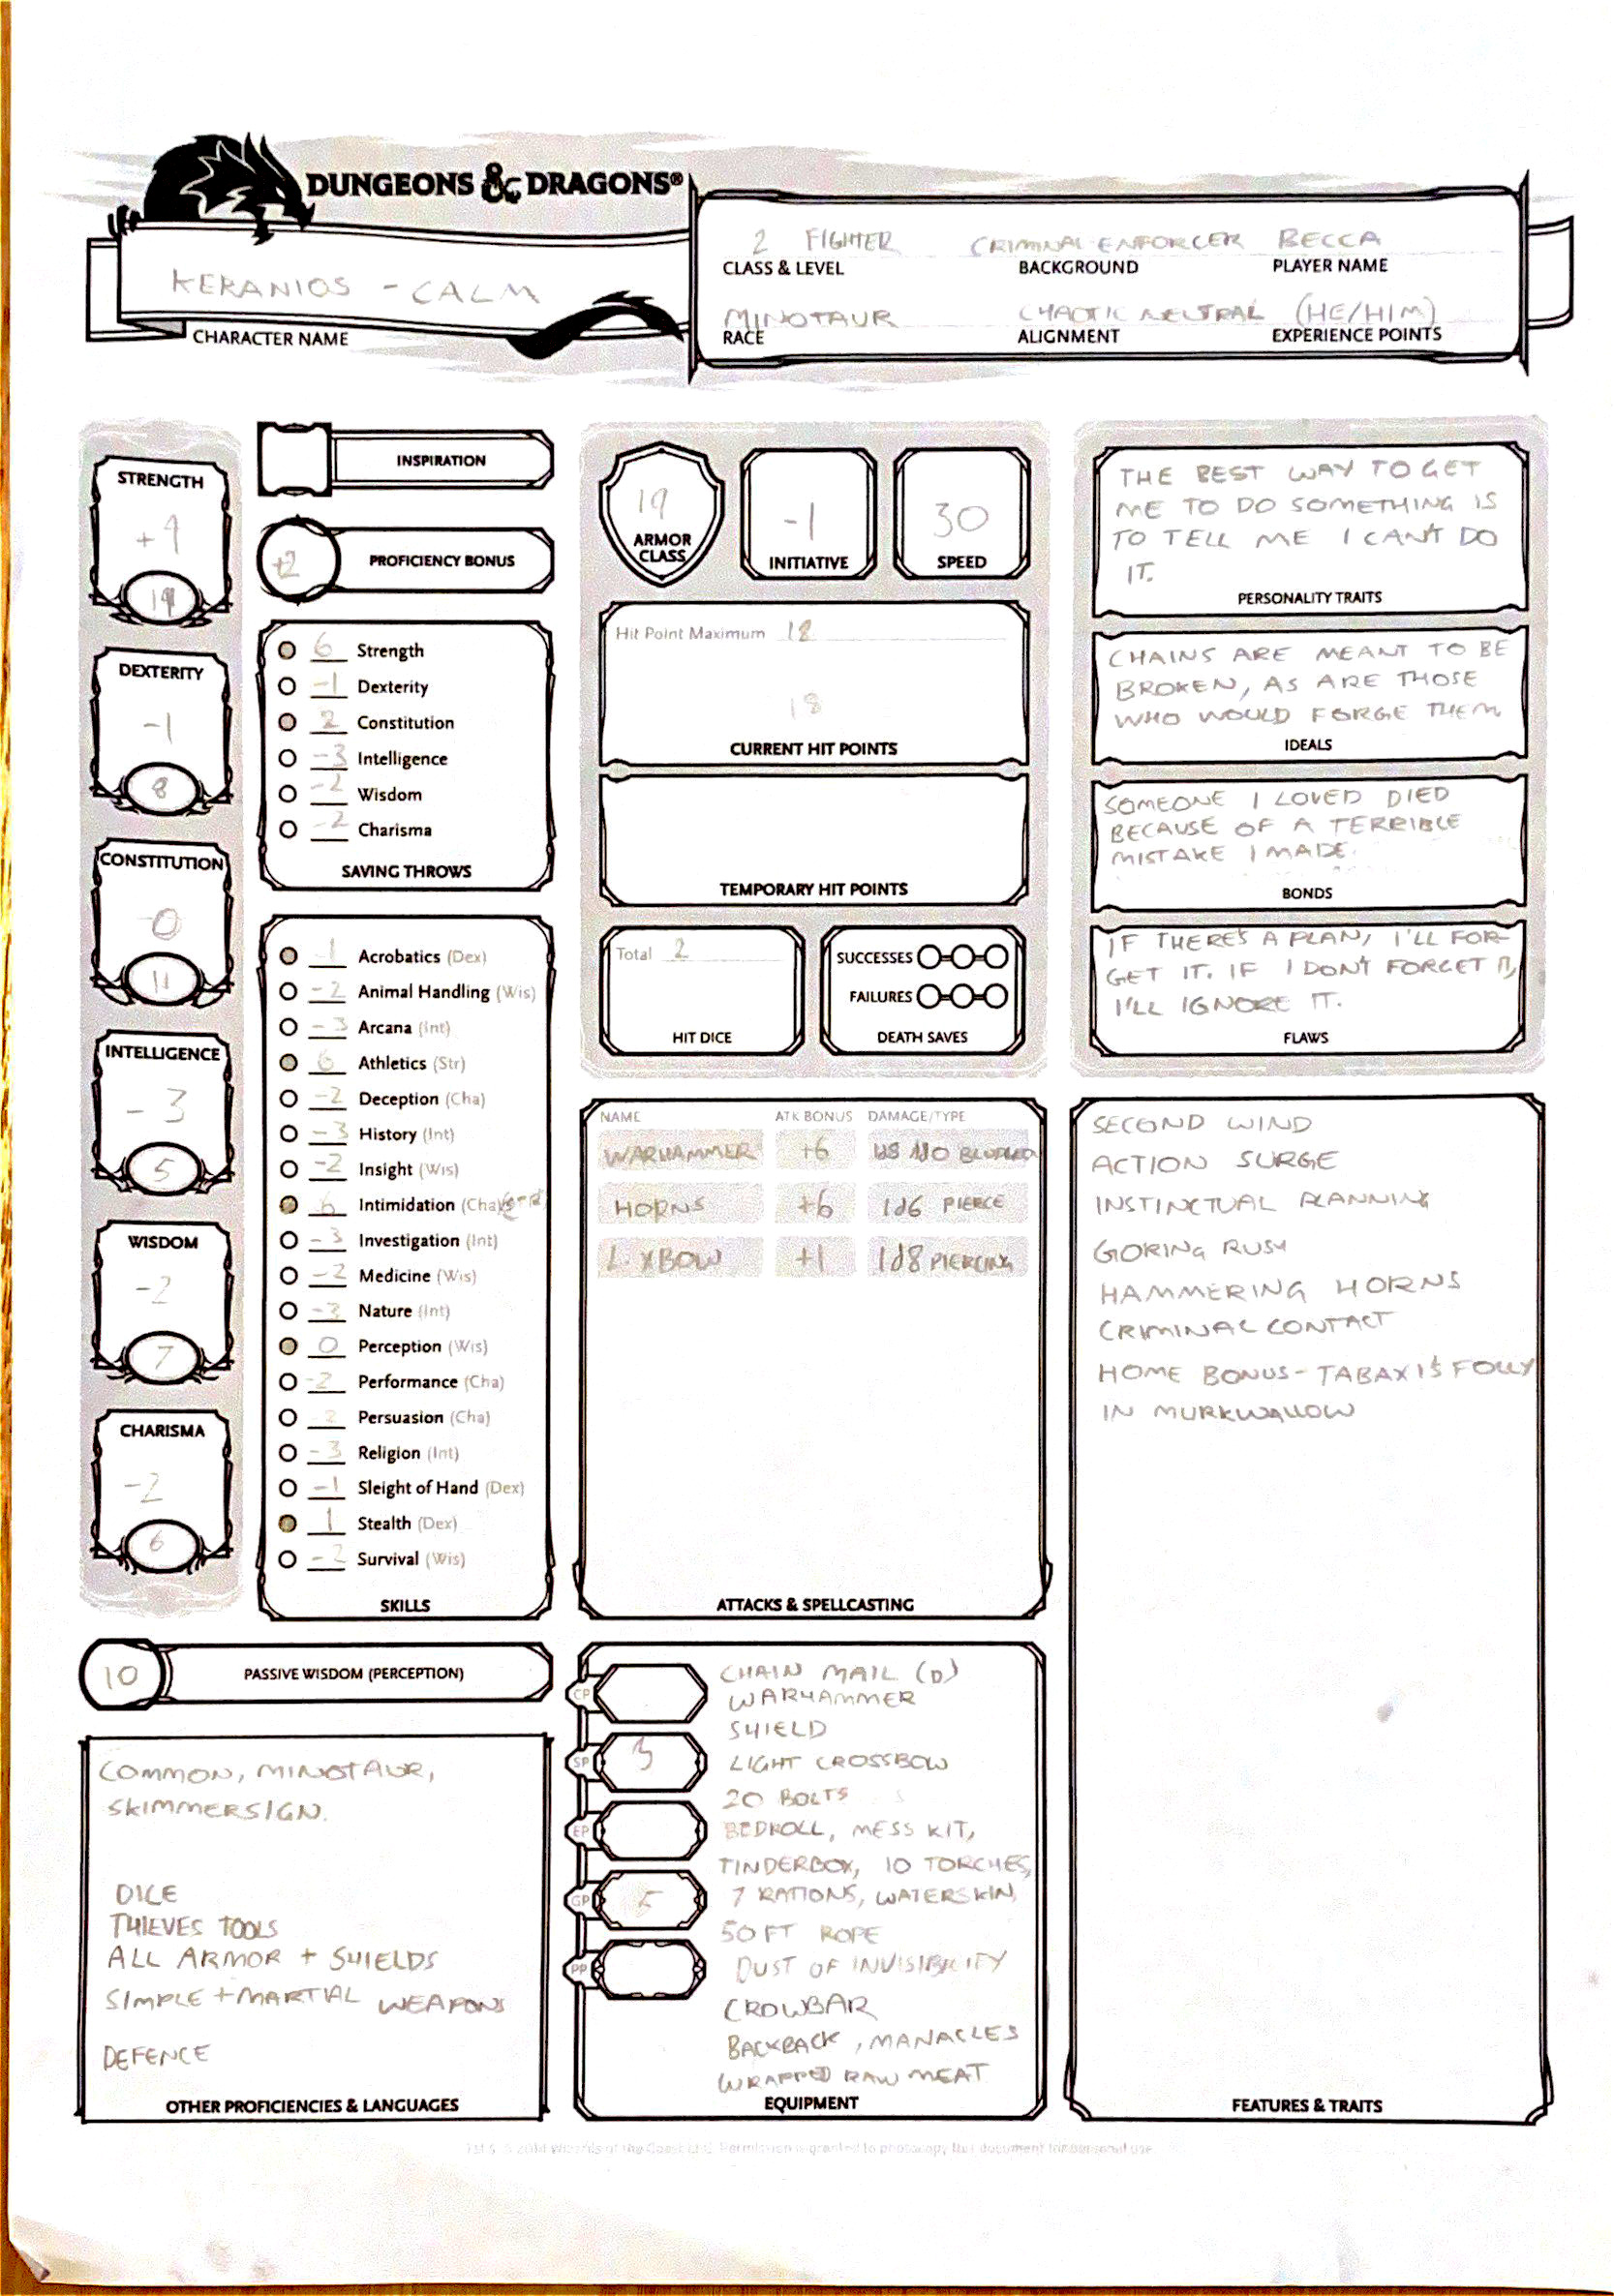 DUNGEONS & DRAGONS®
KERANIOS - CALM
CHARACTER NAME
2 FIGHTER CRIMINAL-ENFORCER BECCA
CLASS & LEVEL BACKGROUND PLAYER NAME
MINOTAUR CHAOTIC NEUTRAL (HE/HIM)
RACE ALIGNMENT EXPERIENCE POINTS
STRENGTH
+4
19
DEXTERITY
-1
8
CONSTITUTION
0
11
INTELLIGENCE
-3
5
WISDOM
-2
7
CHARISMA
-2
6
INSPIRATION
+2 PROFICIENCY BONUS
6 Strength
-1 Dexterity
2 Constitution
-3 Intelligence
-2 Wisdom
-2 Charisma
SAVING THROWS
1 Acrobatics (Dex)
-2 Animal Handling (Wis)
-3 Arcana (Int)
6 Athletics (Str)
-2 Deception (Cha)
-3 History (Int)
-2 Insight (Wis)
6 Intimidation (Cha)
-3 Investigation (Int)
-2 Medicine (Wis)
-3 Nature (Int)
0 Perception (Wis)
-2 Performance (Cha)
2 Persuasion (Cha)
-3 Religion (Int)
-1 Sleight of Hand (Dex)
1 Stealth (Dex)
-2 Survival (Wis)
SKILLS
10 PASSIVE WISDOM (PERCEPTION)
COMMON, MINOTAUR,
SKIMMERSIGN.
DICE
THIEVES TOOLS
ALL ARMOR + SHIELDS
SIMPLE + MARTIAL WEAPONS
DEFENCE
OTHER PROFICIENCIES & LANGUAGES
19
ARMOR
CLASS
-1
INITIATIVE
30
SPEED
Hit Point Maximum 18
18
CURRENT HIT POINTS
TEMPORARY HIT POINTS
Total 2
HIT DICE
SUCCESSES
FAILURES
DEATH SAVES
NAME ATK BONUS DAMAGE/TYPE
WARHAMMER +6 1d8 1d10
HORNS +6 1d6 PIERCE
L. XBOW +1 1d8 PIERCING
ATTACKS & SPELLCASTING
CP
SP 3
EP
GP 5
PP
CHAIN MAIL (D)
WARHAMMER
SHIELD
LIGHT CROSSBOW
20 BOLTS
BEDROLL, MESS KIT,
TINDERBOX, 10 TORCHES,
7 RATIONS, WATERSKIN,
50 FT ROPE
DUST OF INVISIBILITY
CROWBAR
BACKBACK, MANACLES
WRAPPED RAW MEAT
EQUIPMENT
THE BEST WAY TO GET
ME TO DO SOMETHING IS
TO TELL ME I CAN'T DO
IT.
PERSONALITY TRAITS
CHAINS ARE MEANT TO BE
BROKEN, AS ARE THOSE
WHO WOULD FORGE THEM
IDEALS
SOMEONE I LOVED DIED
BECAUSE OF A TERRIBLE
MISTAKE I MADE.
BONDS
IF THERE'S A PLAN, I'LL FOR-
GET IT. IF I DON'T FORGET IT,
I'LL IGNORE IT.
FLAWS
SECOND WIND
ACTION SURGE
INSTINCTUAL PLANNING
GORING RUSH
HAMMERING HORNS
CRIMINAL CONTACT
HOME BONUS - TABAXI'S FOLLY
IN MURKWALLOW
FEATURES & TRAITS